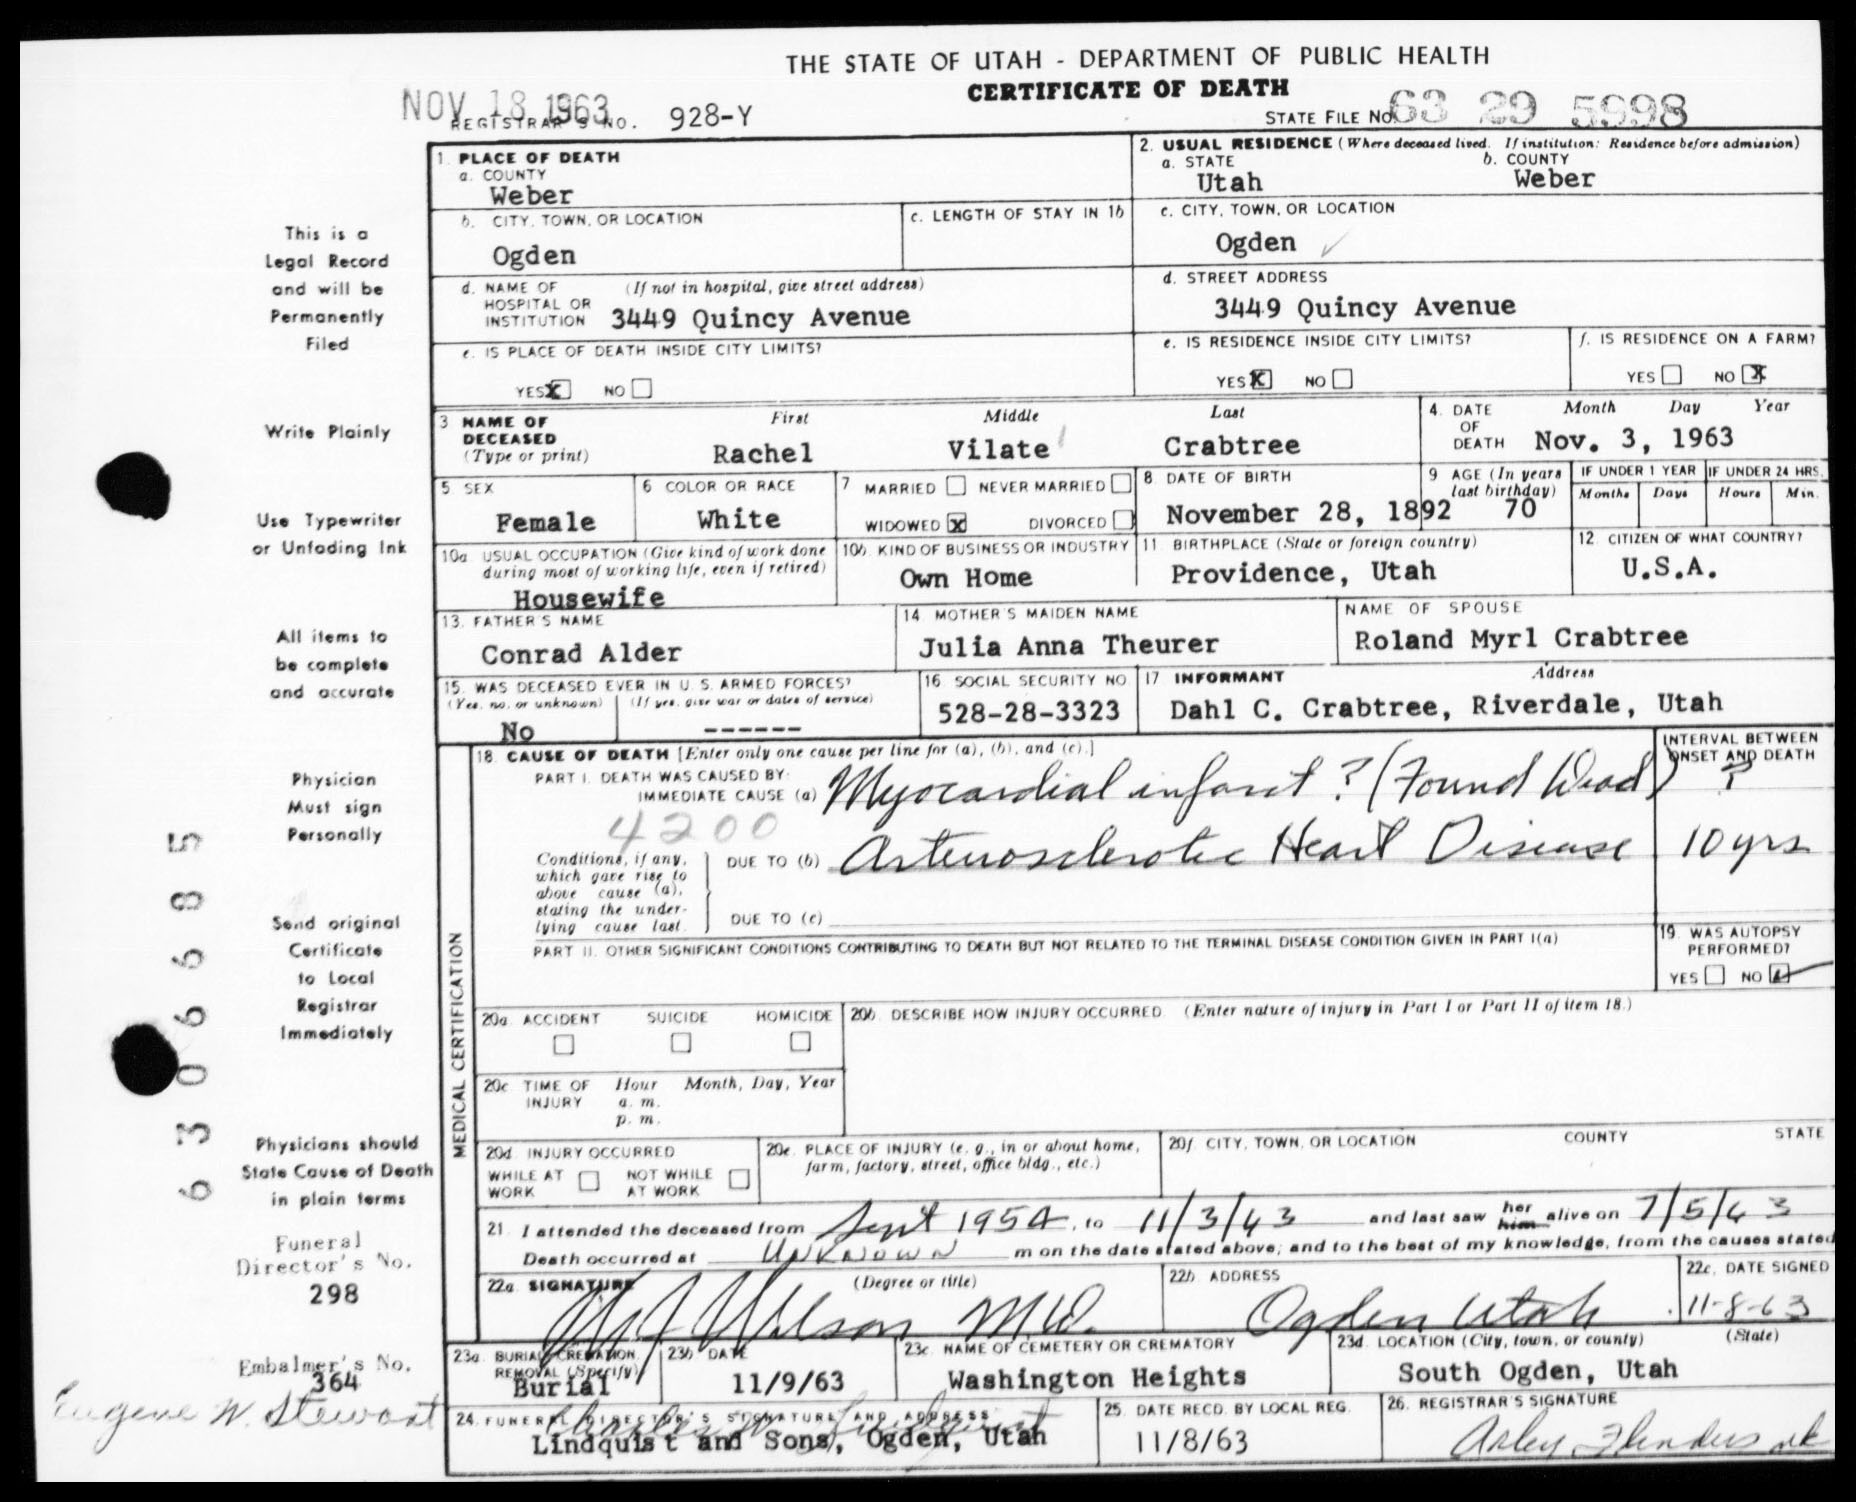 THE STATE OF UTAH - DEPARTMENT OF PUBLIC HEALTH
CERTIFICATE OF DEATH
NOV 18 1963
REGISTRAR'S NO. 928-Y
STATE FILE NO. 63 29 5998
This is a
Legal Record
and will be
Permanently
Filed
Write Plainly
Use Typewriter
or Unfading Ink
All items to
be complete
and accurate
Physician
Must sign
Personally
Send original
Certificate
to Local
Registrar
Immediately
Physicians should
State Cause of Death
in plain terms
Funeral
Director's No.
298
Embalmer's No.
364
Eugene W. Stewart
6 3 0 6 6 8 5
1. PLACE OF DEATH
a. COUNTY
Weber
b. CITY, TOWN, OR LOCATION
Ogden
c. LENGTH OF STAY IN 1b
d. NAME OF HOSPITAL OR INSTITUTION (If not in hospital, give street address)
3449 Quincy Avenue
e. IS PLACE OF DEATH INSIDE CITY LIMITS?
YES X NO
2. USUAL RESIDENCE (Where deceased lived. If institution: Residence before admission)
a. STATE
Utah
b. COUNTY
Weber
c. CITY, TOWN, OR LOCATION
Ogden ✓
d. STREET ADDRESS
3449 Quincy Avenue
e. IS RESIDENCE INSIDE CITY LIMITS?
YES X NO
f. IS RESIDENCE ON A FARM?
YES NO X
3 NAME OF DECEASED (Type or print)
First Middle Last
Rachel Vilate Crabtree
4. DATE OF DEATH
Month Day Year
Nov. 3, 1963
5 SEX
Female
6 COLOR OR RACE
White
7 MARRIED NEVER MARRIED
WIDOWED X DIVORCED
8. DATE OF BIRTH
November 28, 1892
9 AGE (In years last birthday)
70
IF UNDER 1 YEAR
Months Days
IF UNDER 24 HRS.
Hours Min.
10a USUAL OCCUPATION (Give kind of work done during most of working life, even if retired)
Housewife
10b. KIND OF BUSINESS OR INDUSTRY
Own Home
11. BIRTHPLACE (State or foreign country)
Providence, Utah
12. CITIZEN OF WHAT COUNTRY?
U.S.A.
13. FATHER'S NAME
Conrad Alder
14 MOTHER'S MAIDEN NAME
Julia Anna Theurer
NAME OF SPOUSE
Roland Myrl Crabtree
15. WAS DECEASED EVER IN U. S. ARMED FORCES?
(Yes, no, or unknown) (If yes, give war or dates of service)
No ------
16 SOCIAL SECURITY NO.
528-28-3323
17 INFORMANT Address
Dahl C. Crabtree, Riverdale, Utah
MEDICAL CERTIFICATION
18. CAUSE OF DEATH [Enter only one cause per line for (a), (b), and (c).]
INTERVAL BETWEEN ONSET AND DEATH
PART I. DEATH WAS CAUSED BY:
IMMEDIATE CAUSE (a) Myocardial infarct ? (Found Dead) ?
4200
Conditions, if any, which gave rise to above cause (a), stating the underlying cause last.
DUE TO (b) Arteriosclerotic Heart Disease 10 yrs
DUE TO (c)
PART II. OTHER SIGNIFICANT CONDITIONS CONTRIBUTING TO DEATH BUT NOT RELATED TO THE TERMINAL DISEASE CONDITION GIVEN IN PART I(a)
19. WAS AUTOPSY PERFORMED?
YES NO ✓
20a. ACCIDENT SUICIDE HOMICIDE
20b. DESCRIBE HOW INJURY OCCURRED. (Enter nature of injury in Part I or Part II of item 18.)
20c TIME OF INJURY Hour Month, Day, Year
a. m.
p. m.
20d INJURY OCCURRED
WHILE AT WORK NOT WHILE AT WORK
20e. PLACE OF INJURY (e. g., in or about home, farm, factory, street, office bldg., etc.)
20f. CITY, TOWN, OR LOCATION COUNTY STATE
21. I attended the deceased from Sept 1954, to 11/3/63 and last saw her him alive on 7/5/63
Death occurred at UNKNOWN m on the date stated above; and to the best of my knowledge, from the causes stated
22a. SIGNATURE (Degree or title)
Wilson MD.
22b ADDRESS
Ogden Utah
22c. DATE SIGNED
11-8-63
23a. BURIAL, CREMATION, REMOVAL (Specify)
Burial
23b DATE
11/9/63
23c. NAME OF CEMETERY OR CREMATORY
Washington Heights
23d. LOCATION (City, town, or county) (State)
South Ogden, Utah
24. FUNERAL DIRECTOR'S SIGNATURE AND ADDRESS
Lindquist and Sons, Ogden, Utah
25. DATE RECD. BY LOCAL REG.
11/8/63
26. REGISTRAR'S SIGNATURE